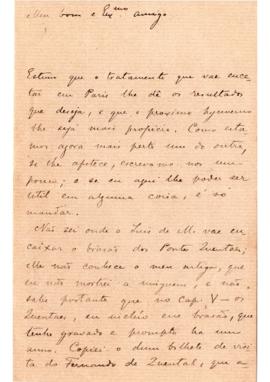 Meu bom e Ex.mo amigo
Estimo que o tratamento que vae ence-
tar em Paris lhe dê os resultados
que deseja, e que o proximo hynverno
lhe seja mais propicio. Como esta-
mos agora mais perto um do outro,
se lhe apetece, escrevamo nos um
pouco; e se eu aqui lhe poder ser
util em alguma coisa, é só
mandar.
Não sei onde o Luis de M. vae en-
caixar o brasão dos Ponte Quental;
elle não conhece o meu artigo, que
eu não mostrei a ninguem, e não
sabe portanto que no Cap. V — os
Quentaes, eu incluo esse brasão, que
tenho gravado e prompto ha um
anno. Copiei o dum bilhete de visi-
ta do Fernando de Quental, que a